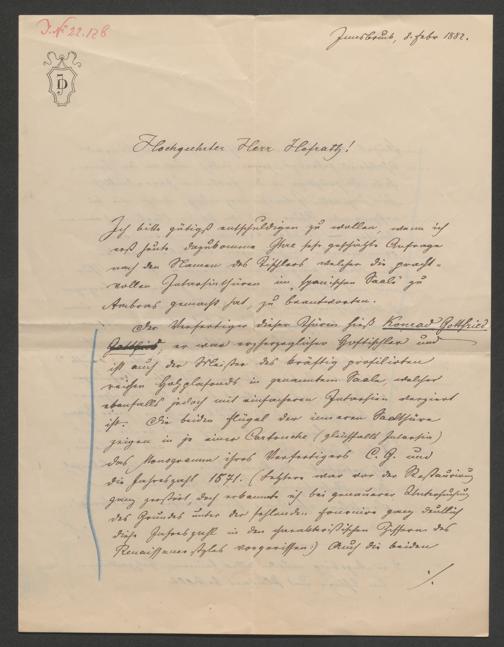 J.N 22.128
JD
Innsbruck, 8. Febr 1882.
Hochgeehrter Herr Hofrath!
Ich bitte gütigst entschuldigen zu wollen, wenn ich
erst heute dazukomme Ihre sehr geschätzte Anfrage
nach den Namen des Tischlers welcher die pracht-
vollen Intarsiathüren im „spanischen Saale“ zu
Ambras gemacht hat, zu beantworten.
Der Verfertiger dieser Thüren hieß Konrad Gottfried
Gottfried, er war erzherzoglicher Hoftischler und
ist auch der Meister des kräftig profilirten
reichen Holzplafonds in genanntem Saale, welcher
ebenfalls jedoch mit einfacheren Intarsien verziert
ist. Die beiden Flügel der inneren Saalthüre
zeigen in je einer Cartouche (gleichfalls Intarsia)
das Monogramm ihres Verfertigers C. G. und
die Jahreszahl 1571. (Letztere war vor der Restaurirung
ganz zerstört, doch erkannte ich bei genauerer Untersuchung
des Grundes unter der fehlenden Fournire ganz deutlich
diese Jahreszahl in den charakteristischen Ziffern des
Renaissancestyles vorgerissen.) Auch die beiden
./.